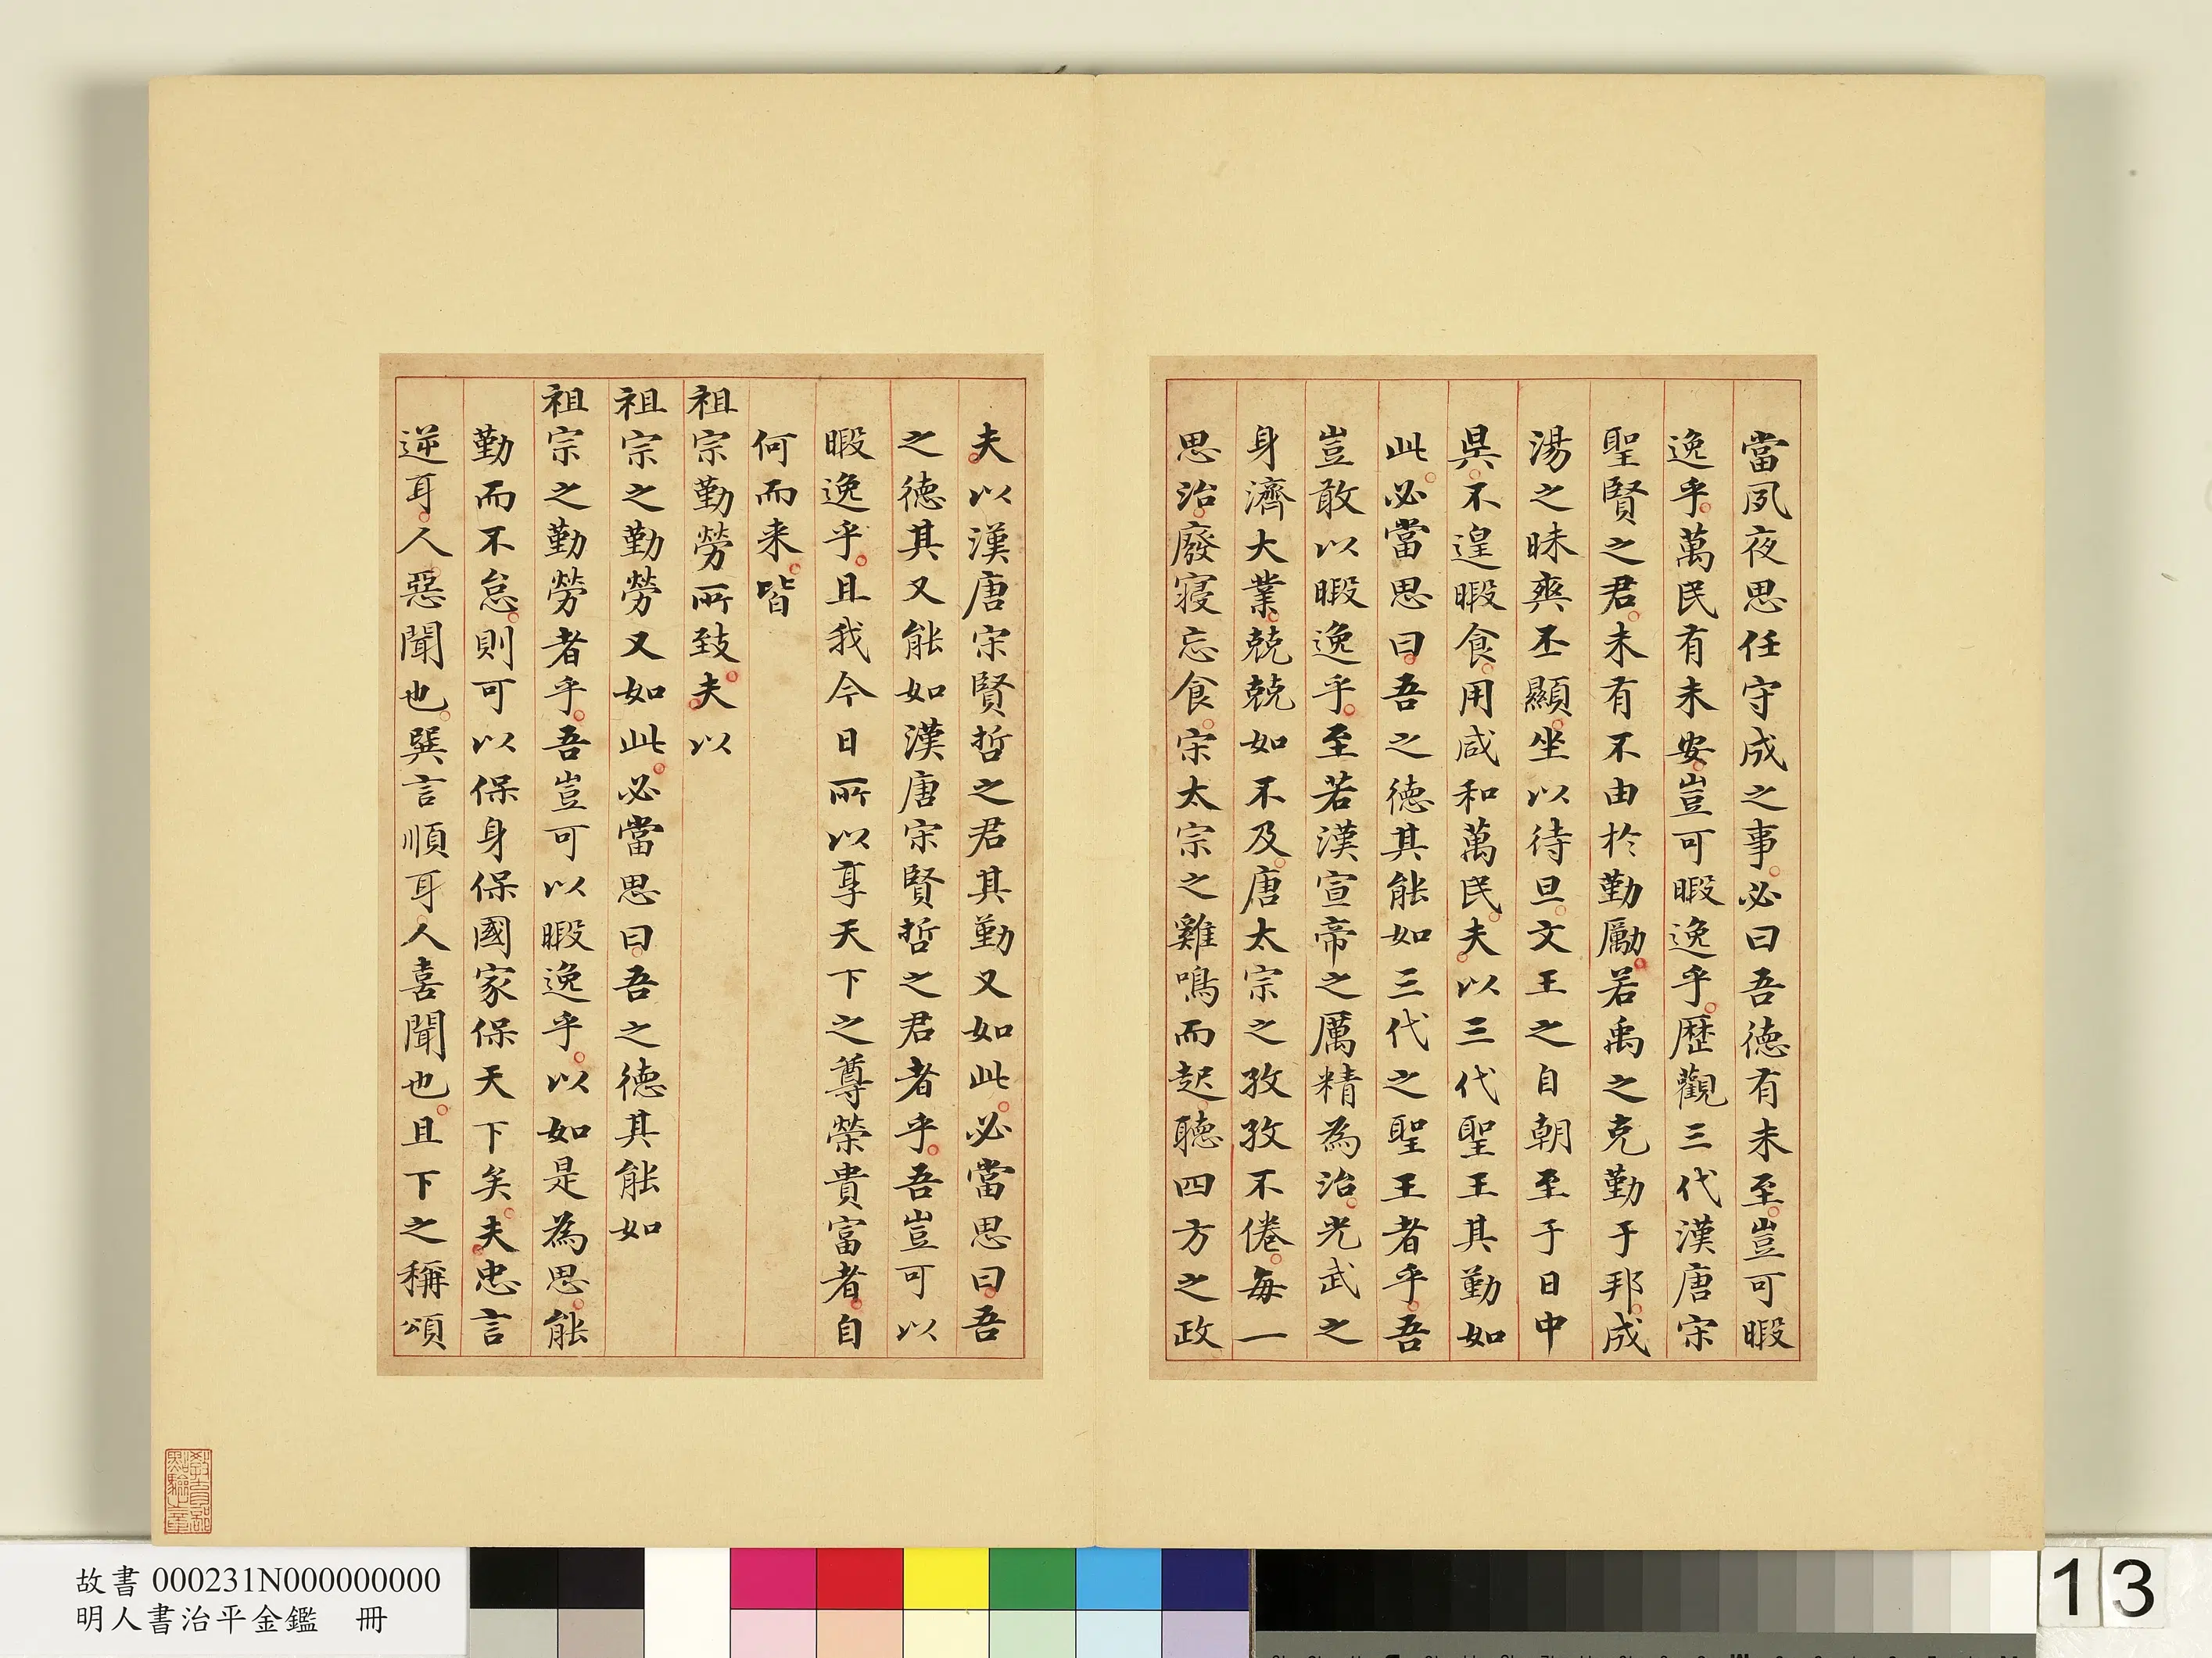 當夙夜思任守成之事必曰吾德有未至豈可暇
逸乎萬民有未安豈可暇逸乎歷觀三代漢唐宋
聖賢之君未有不由於勤勵若禹之克勤于邦成
湯之昧爽丕顯坐以待旦文王之自朝至于日中
昃不遑暇食用咸和萬民夫以三代聖王其勤如
此必當思曰吾之德其能如三代之聖王者乎吾
豈敢以暇逸乎至若漢宣帝之厲精為治光武之
身濟大業兢兢如不及唐太宗之孜孜不倦每一
思治廢寝忘食宋太宗之雞鳴而起聽四方之政
夫以漢唐宋賢哲之君其勤又如此必當思曰吾
之德其又能如漢唐宋賢哲之君者乎吾豈可以
暇逸乎且我今日所以享天下之尊榮貴富者自
何而来皆
祖宗勤勞所致夫以
祖宗之勤勞又如此必當思曰吾之德其能如
祖宗之勤勞者乎吾豈可以暇逸乎以如是為思能
勤而不怠則可以保身保國家保天下矣夫忠言
逆耳人惡聞也巽言順耳人喜聞也且下之稱頌
故書 000231N000000000
明人書治平金鑑 冊
13